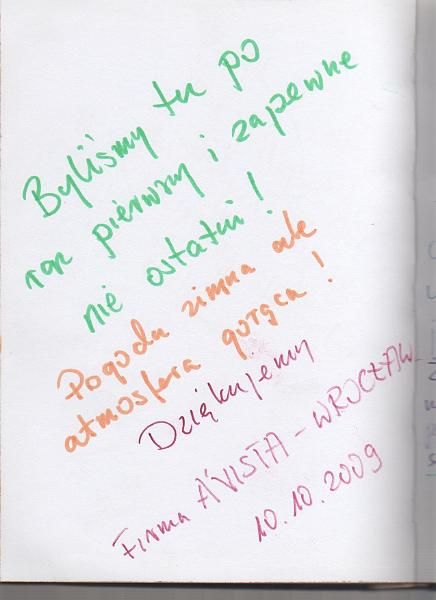 Byliśmy tu po
raz pierwszy i zapewne
nie ostatni!
Pogoda zimna ale
atmosfera gorąca!
Dziękujemy
Firma A'VISTA - WROCŁAW
10.10.2009